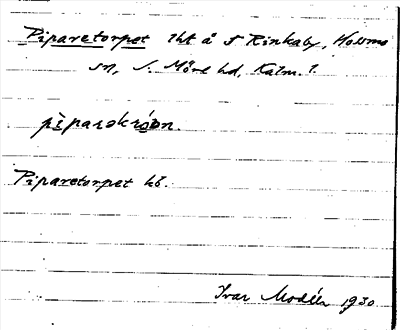 Piparetorpet lht å f Rinkaby, Hossmo
sn, S. Möre hd, Kalm. l.
pìparəkrón.
Piparetorpet kb.
Ivar Modéer 1930